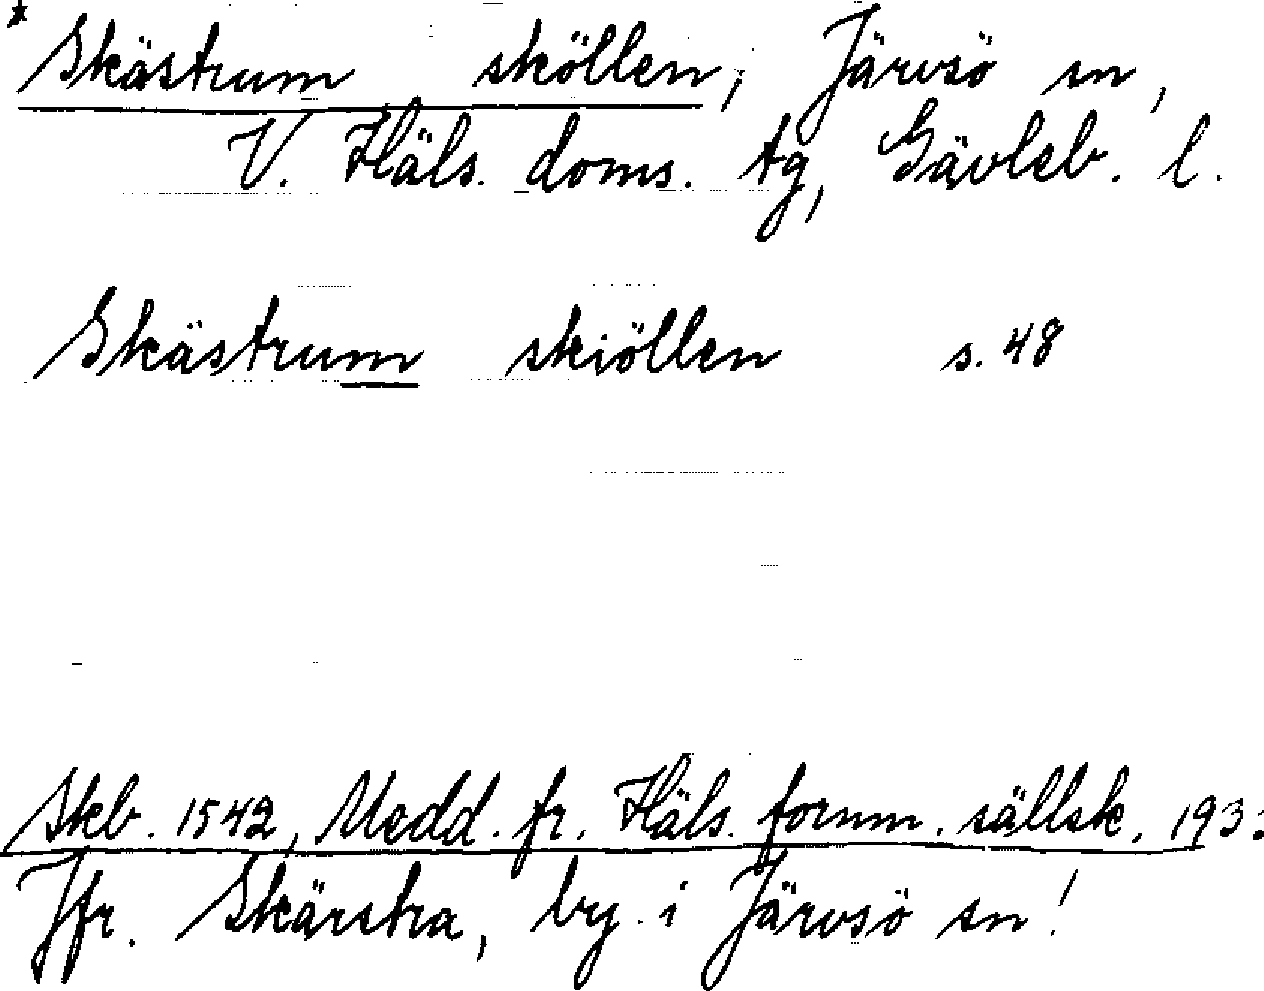 * Skästrum sköllen, Järvsö sn,
V. Häls. doms. tg, Gävleb. l.
Skästrum skiöllen s. 48
Skb. 1542, Medd. fr. Häls. fornm. sällsk. 193
Jfr. Skärstra, by i Järvsö sn!